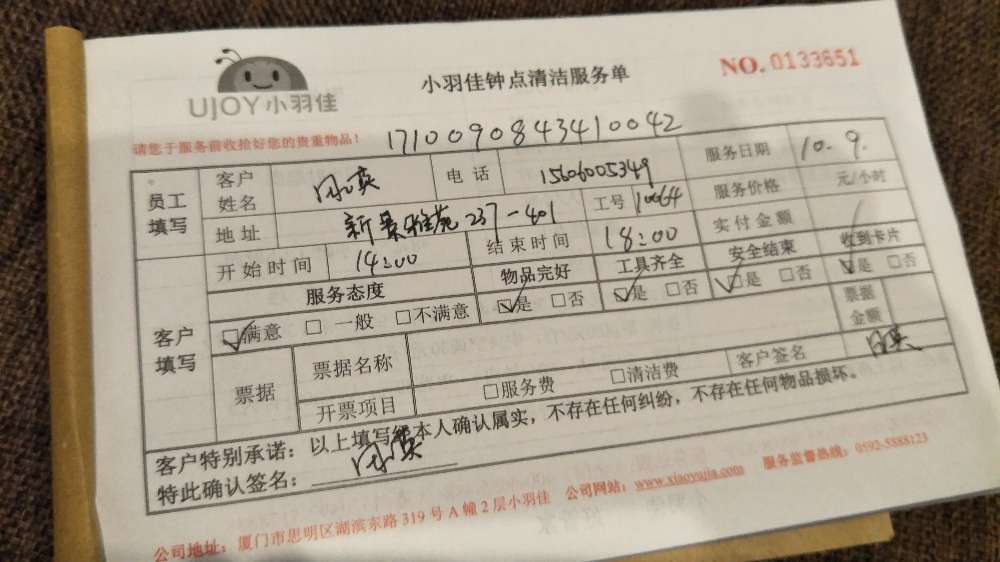 UJOY小羽佳
小羽佳钟点清洁服务单
NO.0133651
请您于服务前收拾好您的贵重物品！
171009084341 0042
员工填写 客户姓名 电话 15606005349 服务日期 10.9.
地址 新景雅苑237-401 工号 10664 服务价格 元/小时
客户填写 开始时间 14:00 结束时间 18:00 实付金额
服务态度 物品完好 工具齐全 安全结束 收到卡片
☑满意 □一般 □不满意 ☑是 □否 ☑是 □否 ☑是 □否 ☑是 □否
票据 票据名称 票据金额
开票项目 □服务费 □清洁费 客户签名
客户特别承诺：以上填写经本人确认属实，不存在任何纠纷，不存在任何物品损坏。
特此确认签名：
公司地址：厦门市思明区湖滨东路319号A幢2层小羽佳 公司网站：www.xiaoyujia.com 服务监督热线：0592-5888123